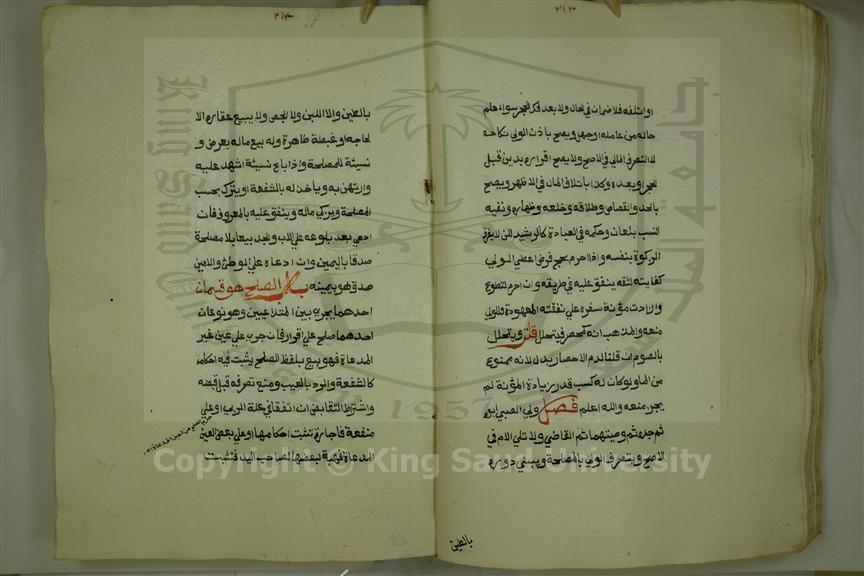 او اتلفه فلا ضمان في الحال ولا بعد فك الحجر سواء علم
حاله من عامله او جهل ويصح باذن الولي نكاحه
لا التصرف المالي في الاصح ولا يصح اقراره بدين قبل
الحجر او بعده وكذا باتلاف المال في الاظهر ويصح
بالحد والقصاص وطلاقه وخلعه وظهاره ونفيه
النسب بلعان وحكمه في العبادة كالرشيد لكن لا يفرق
الزكوة بنفسه واذا احرم بحج فرض اعطي الولي
كفايته لثقة ينفق عليه في طريقه وان احرم بتطوع
وزادت مؤنة سفره علي نفقته المعهودة فللولي
منعه والمذهب انه كمحصر فيتحلل قلت ويتحلل
بالصوم ان قلنا لدم الاحصار بدل لانه ممنوع
من المال ولو كان له كسب قدر زيادة المؤنة لم
يجز منعه والله اعلم فصل ولي الصبي ابوه
ثم جده ثم وصيهما ثم القاضي ولا تلي الام في
الاصح ويتصرف الولي بالمصلحة ويبني دوره
بالطين
بالطين والاا اللبن والا الجص ولا يبيع عقاره الا
لحاجه او غبطة ظاهرة وله بيع ماله بعرض و
نسيئة للمصلحة واذا باع نسيئة اشهد عليه
وارتهن به وياخذ له بالشفعة او يترك بحسب
المصلحة ويزكي ماله وينفق عليه بالمعروف فان
ادعي بعد بلوغه علي الاب والجد بيعا بلا مصلحة
صدقا باليمين وان ادعاه علي الوصي والامين
صدق هو بيمينه باب الصلح هو قسمان
احدهما يجري بين المتداعيين وهو نوعان
احدهما صلح علي اقرار فان جري علي عين غير
المدعاة فهو بيع بلفظ الصلح يثبت فيه احكامه
كالشفعة والرد بالعيب ومنع تصرفه قبل قبضه
واشتراط التقابض ان اتفقا في علة الربا او علي
منفعة فاجارة تثبت احكامها او علي بعض العين
المدعاة فهبة لبعضها لصاحب اليد فتثبت
Copyright © King Saud University
King Saud University
1957
جامعة الملك سعود